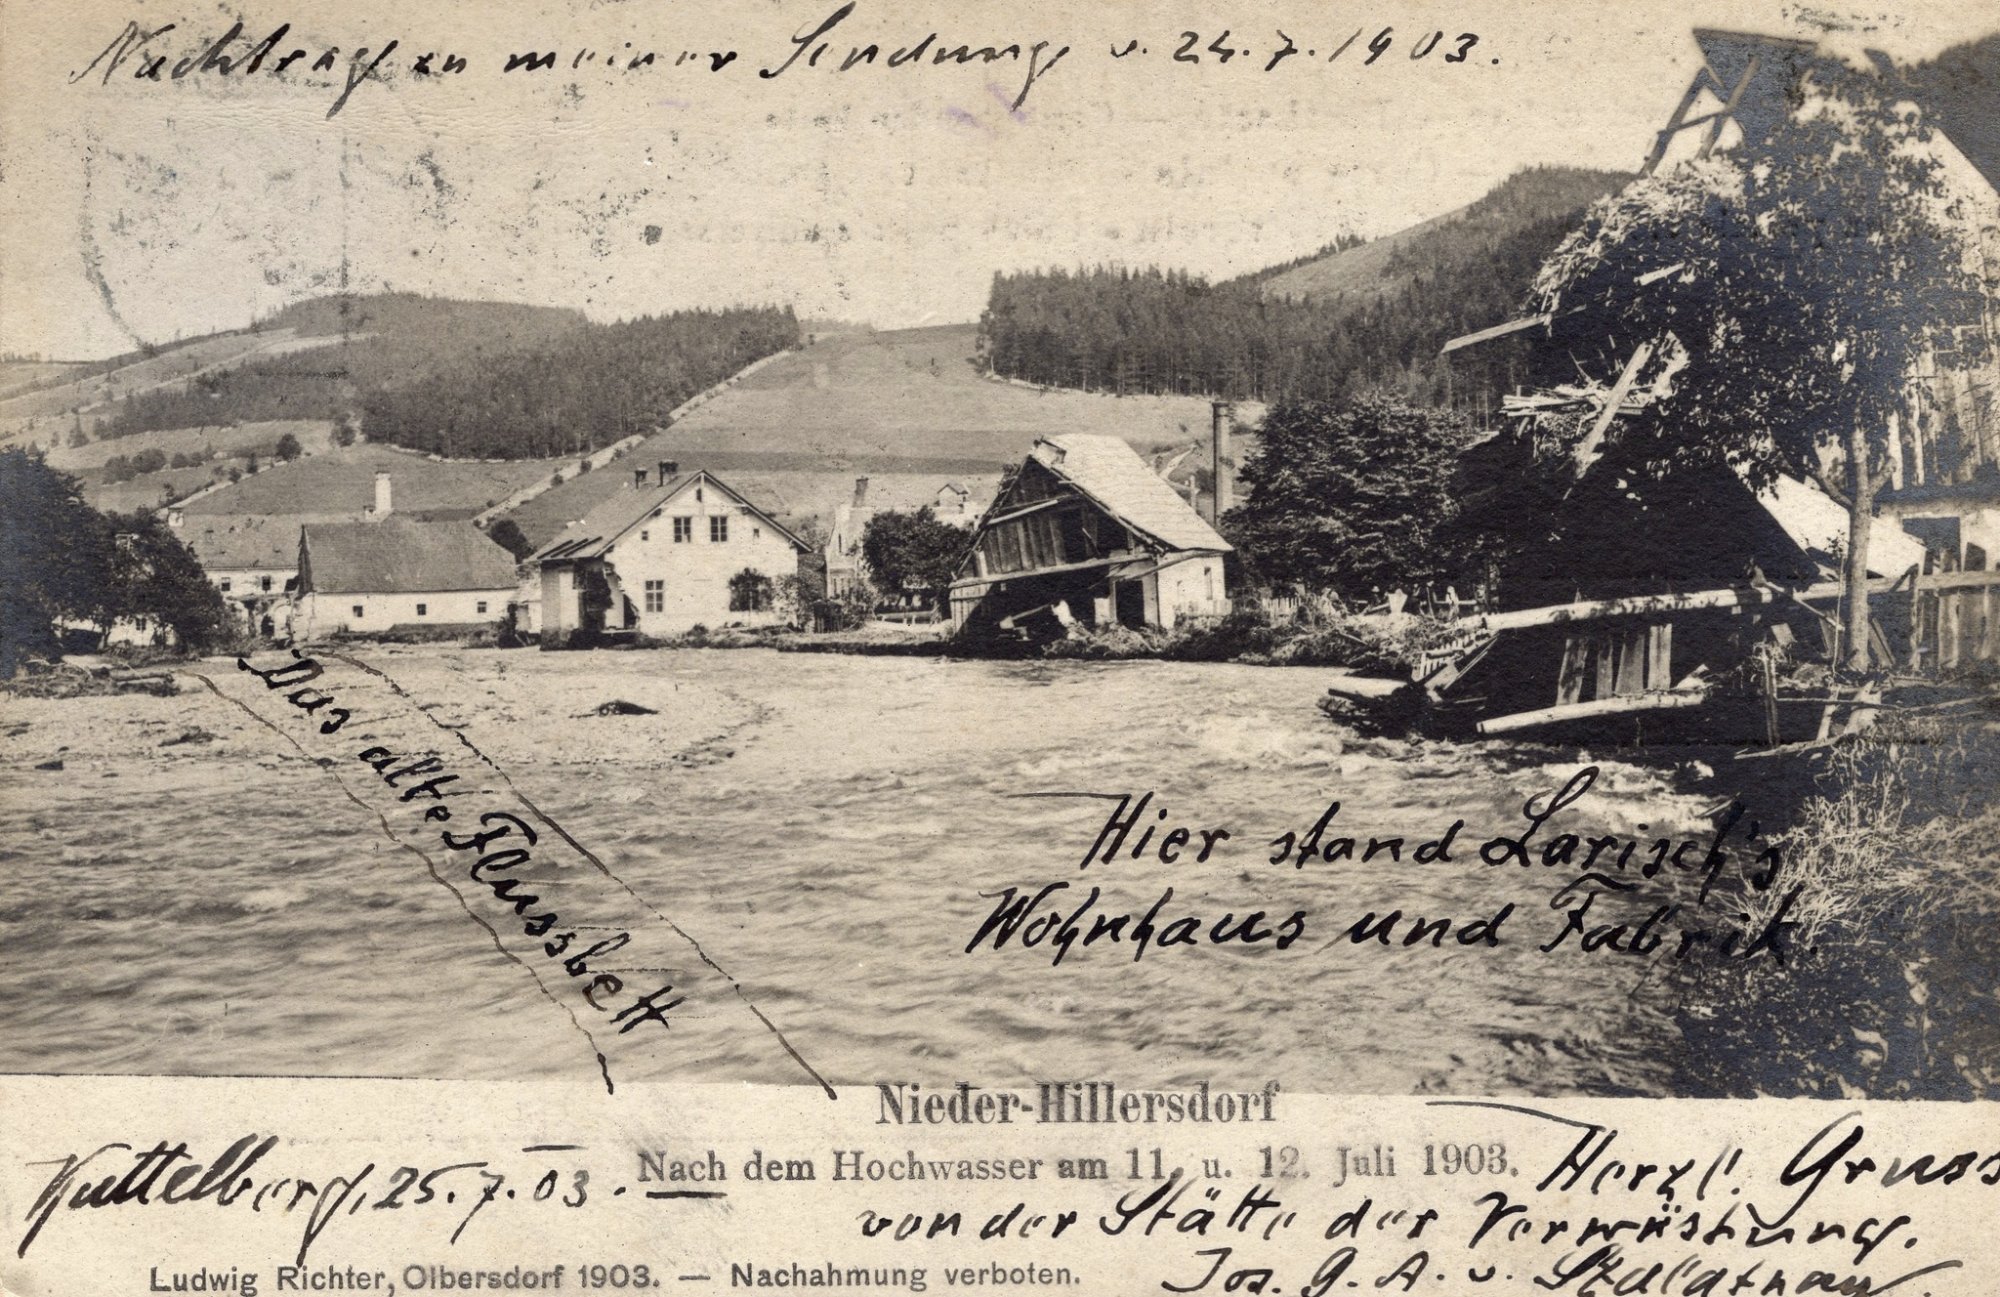 Nachtrag zu meiner Sendung v. 24.7.1903.
Das alte Flussbett
Hier stand Larisch's
Wohnhaus und Fabrik.
Nieder-Hillersdorf
Nach dem Hochwasser am 11. u. 12. Juli 1903.
Kuttelberg, 25.7.03. —
Herzl. Gruss
von der Stätte der Verwüstung.
Jos. G. A. v.
Ludwig Richter, Olbersdorf 1903. — Nachahmung verboten.